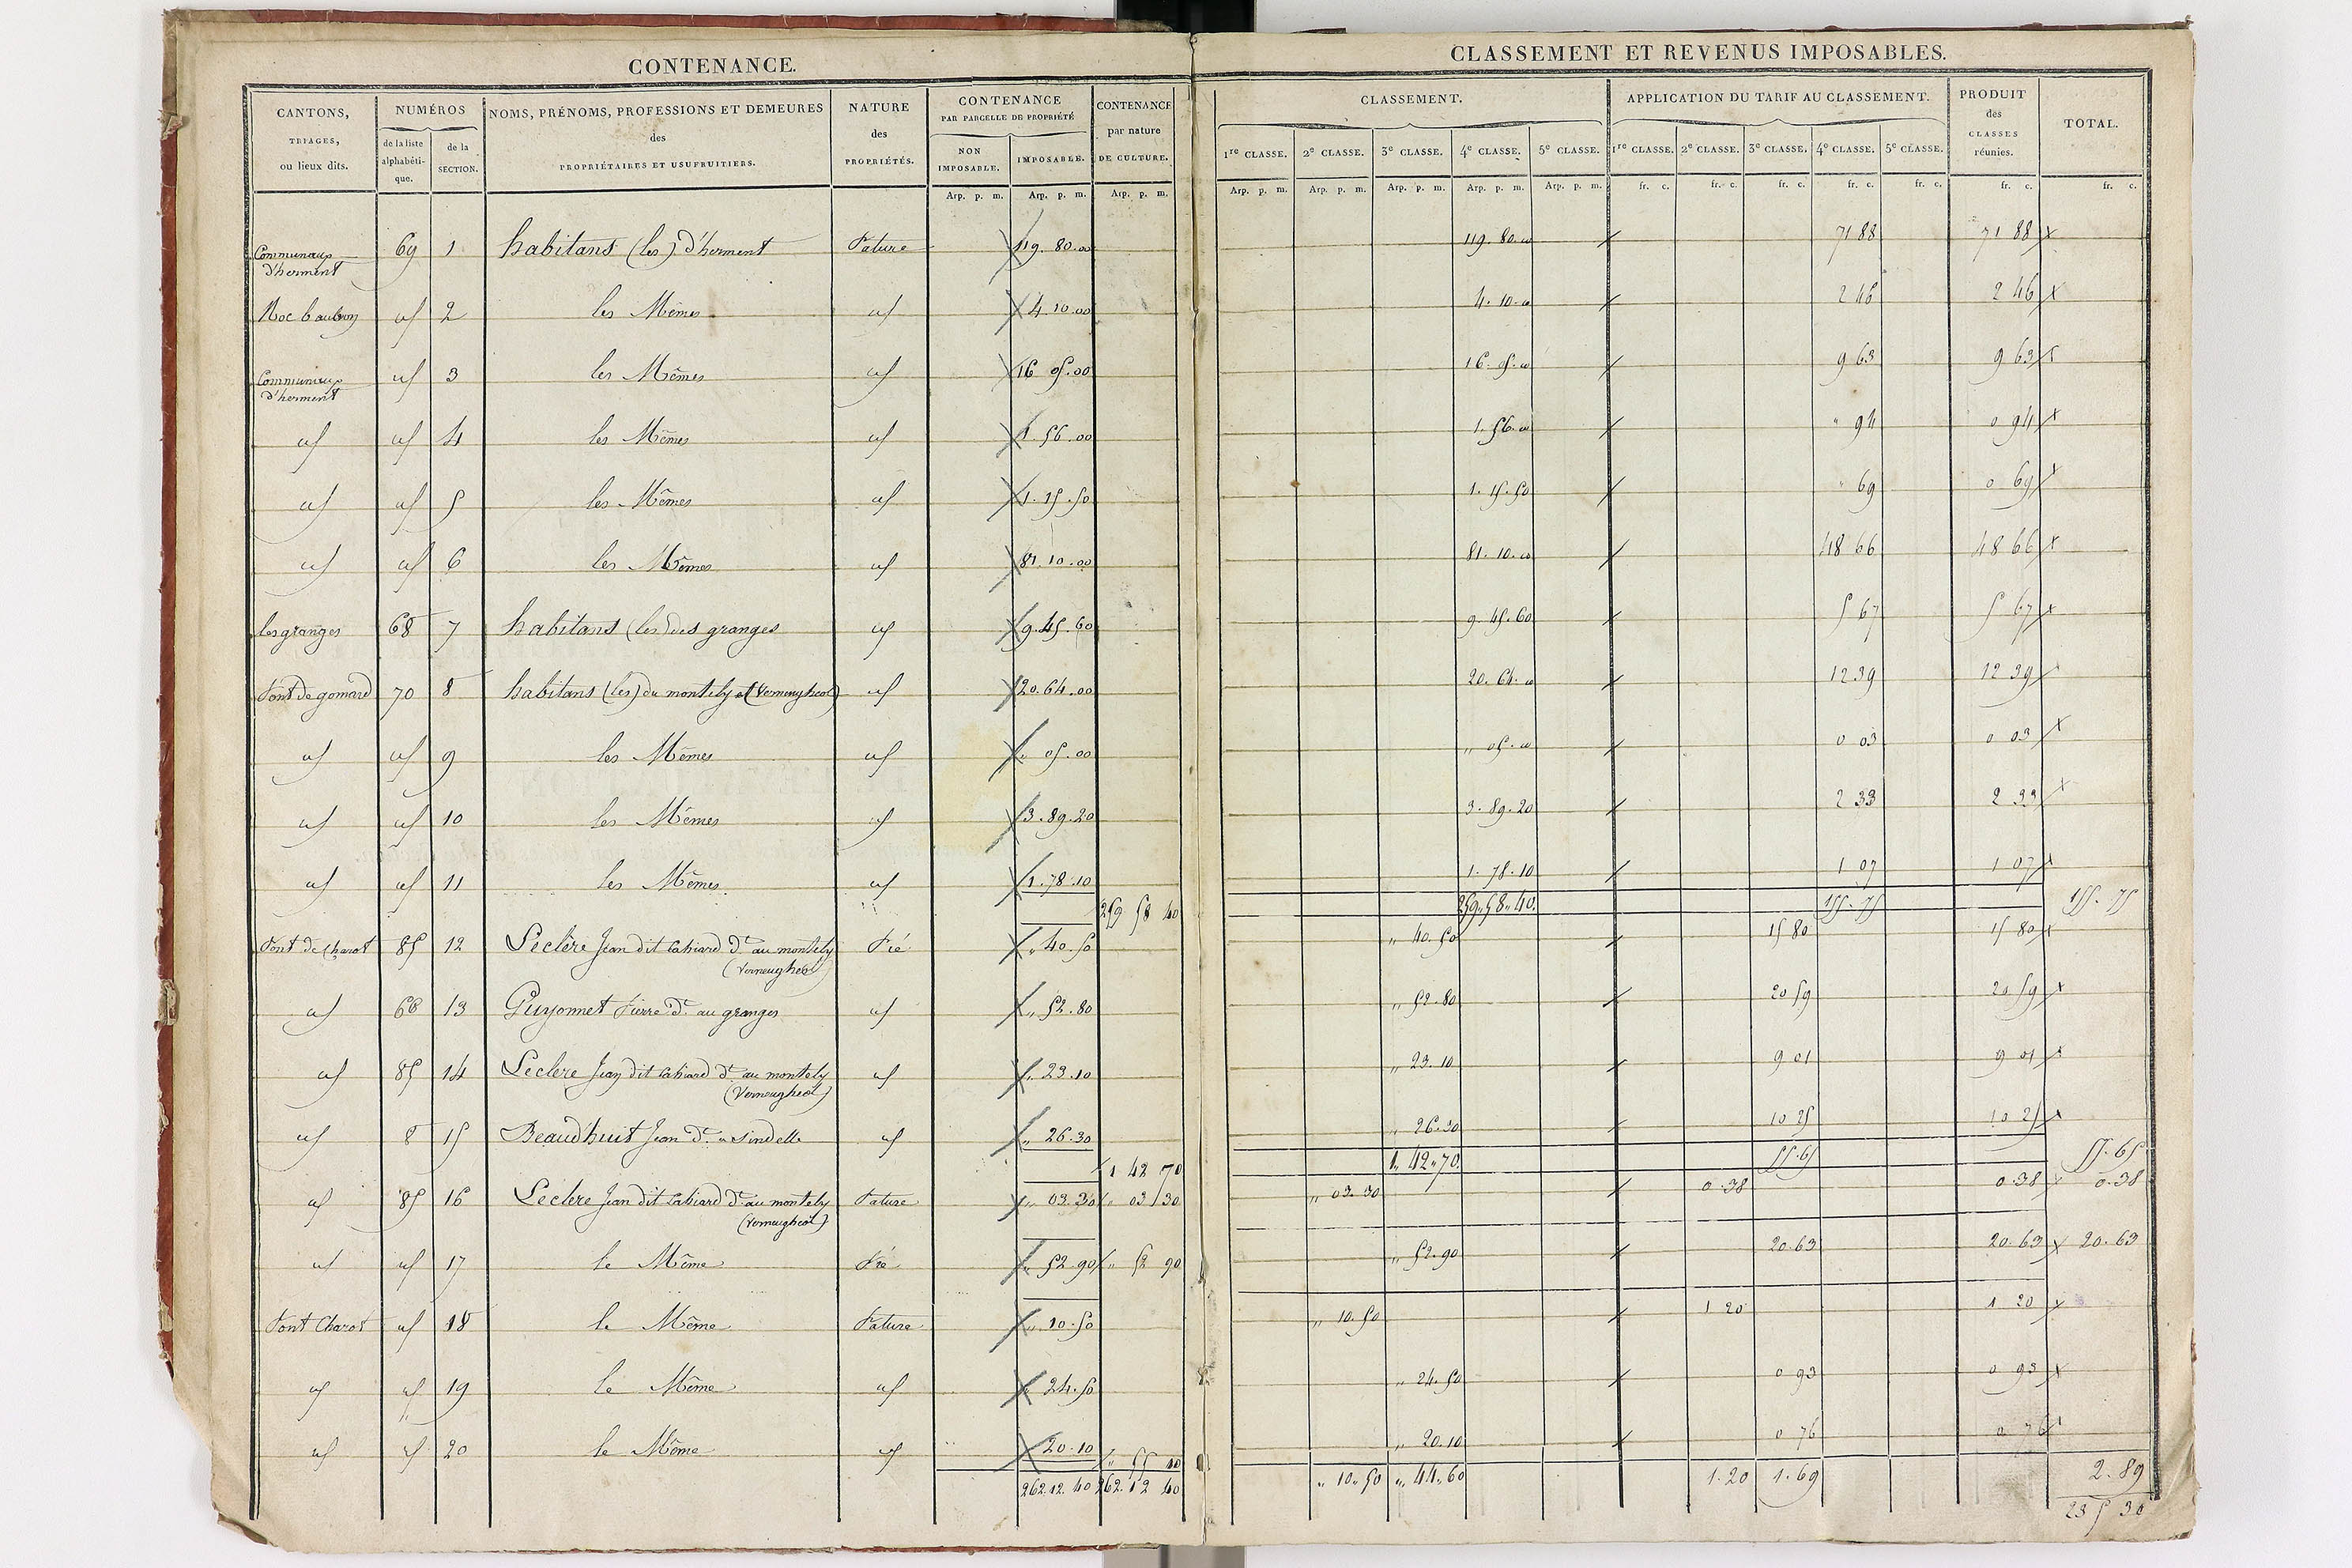 CONTENANCE.
CANTONS, TRIAGES, ou lieux dits.
NUMÉROS
de la liste alphabéti-que.
de la SECTION.
NOMS, PRÉNOMS, PROFESSIONS ET DEMEURES
des
PROPRIÉTAIRES ET USUFRUITIERS.
NATURE des PROPRIÉTÉS.
CONTENANCE PAR PARCELLE DE PROPRIÉTÉ
NON IMPOSABLE.
IMPOSABLE.
CONTENANCE par nature DE CULTURE.
Arp. p. m. Arp. p. m. Arp. p. m.
Communaux d'herment 69 1 habitans (les) d'herment Pature 119. 80.00
2 les Mêmes 4. 10.00
Communaux d'herment 3 les Mêmes 16 05.00
4 les Mêmes 1. 56.00
5 les Mêmes 1. 15.50
6 les Mêmes 81. 10.00
les granges 68 7 habitans (les) des granges 9. 45. 60
Font de gomard 70 8 habitans (les) du montely et (Verneugheol) 20. 64.00
9 les Mêmes " 05.00
10 les Mêmes 3. 89.20
11 les Mêmes 1. 78.10
259 58 40
Font de Charot 85 12 Leclère Jean dit Cahiard dt au montely (Verneugheol) Pré " 40. 50
13 Guyonnet Pierre dt au granges " 52. 80
85 14 Leclere Jean dit Cahiard dt au montely (Verneugheol) " 23.10
8 15 Beaudhuit Jean dt a Sindelle " 26.30
1 42 70
85 16 Leclere Jean dit Cahiard dt au montely (Verneugheol) Pature " 03.30 " 03 30
17 le Même Pré " 52.90 " 52 90
Font Charot 18 le Même Pature " 10.50
19 le Même " 24.50
20 le Même " 20.10 " 55 10
262.12.40 262.12 40
CLASSEMENT ET REVENUS IMPOSABLES.
CLASSEMENT.
1re CLASSE. 2e CLASSE. 3e CLASSE. 4e CLASSE. 5e CLASSE.
APPLICATION DU TARIF AU CLASSEMENT.
1re CLASSE. 2e CLASSE. 3e CLASSE. 4e CLASSE. 5e CLASSE.
PRODUIT des CLASSES réunies.
TOTAL.
Arp. p. m. Arp. p. m. Arp. p. m. Arp. p. m. Arp. p. m. fr. c. fr. c. fr. c. fr. c. fr. c. fr. c. fr. c.
119. 80.00 71 88 71 88
4. 10.00 2 46 2 46
16. 05.00 9 63 9 63
1. 56.00 " 94 0 94
1. 15.50 " 69 0 69
81. 10.00 48 66 48 66
9. 45.60 5 67 5 67
20. 64.00 12 39 12 39
" 05.00 0 03 0 03
3. 89.20 2 33 2 33
1. 78.10 1 07 1 07
259. 58. 40. 155. 75 155. 75
" 40. 50 15 80 15 80
" 52.80 20 59 20 59
" 23.10 9 01 9 01
" 26.30 10 25 10 25
1. 42. 70. 55.65 55. 65
" 03.30 0.38 0.38 0.38
" 52.90 20.63 20.63 20.63
" 10.50 1 20 1 20
" 24.50 0 93 0 93
" 20.10 0 76 0 76
" 10. 50 " 44. 60 1.20 1.69 2.89
235 30